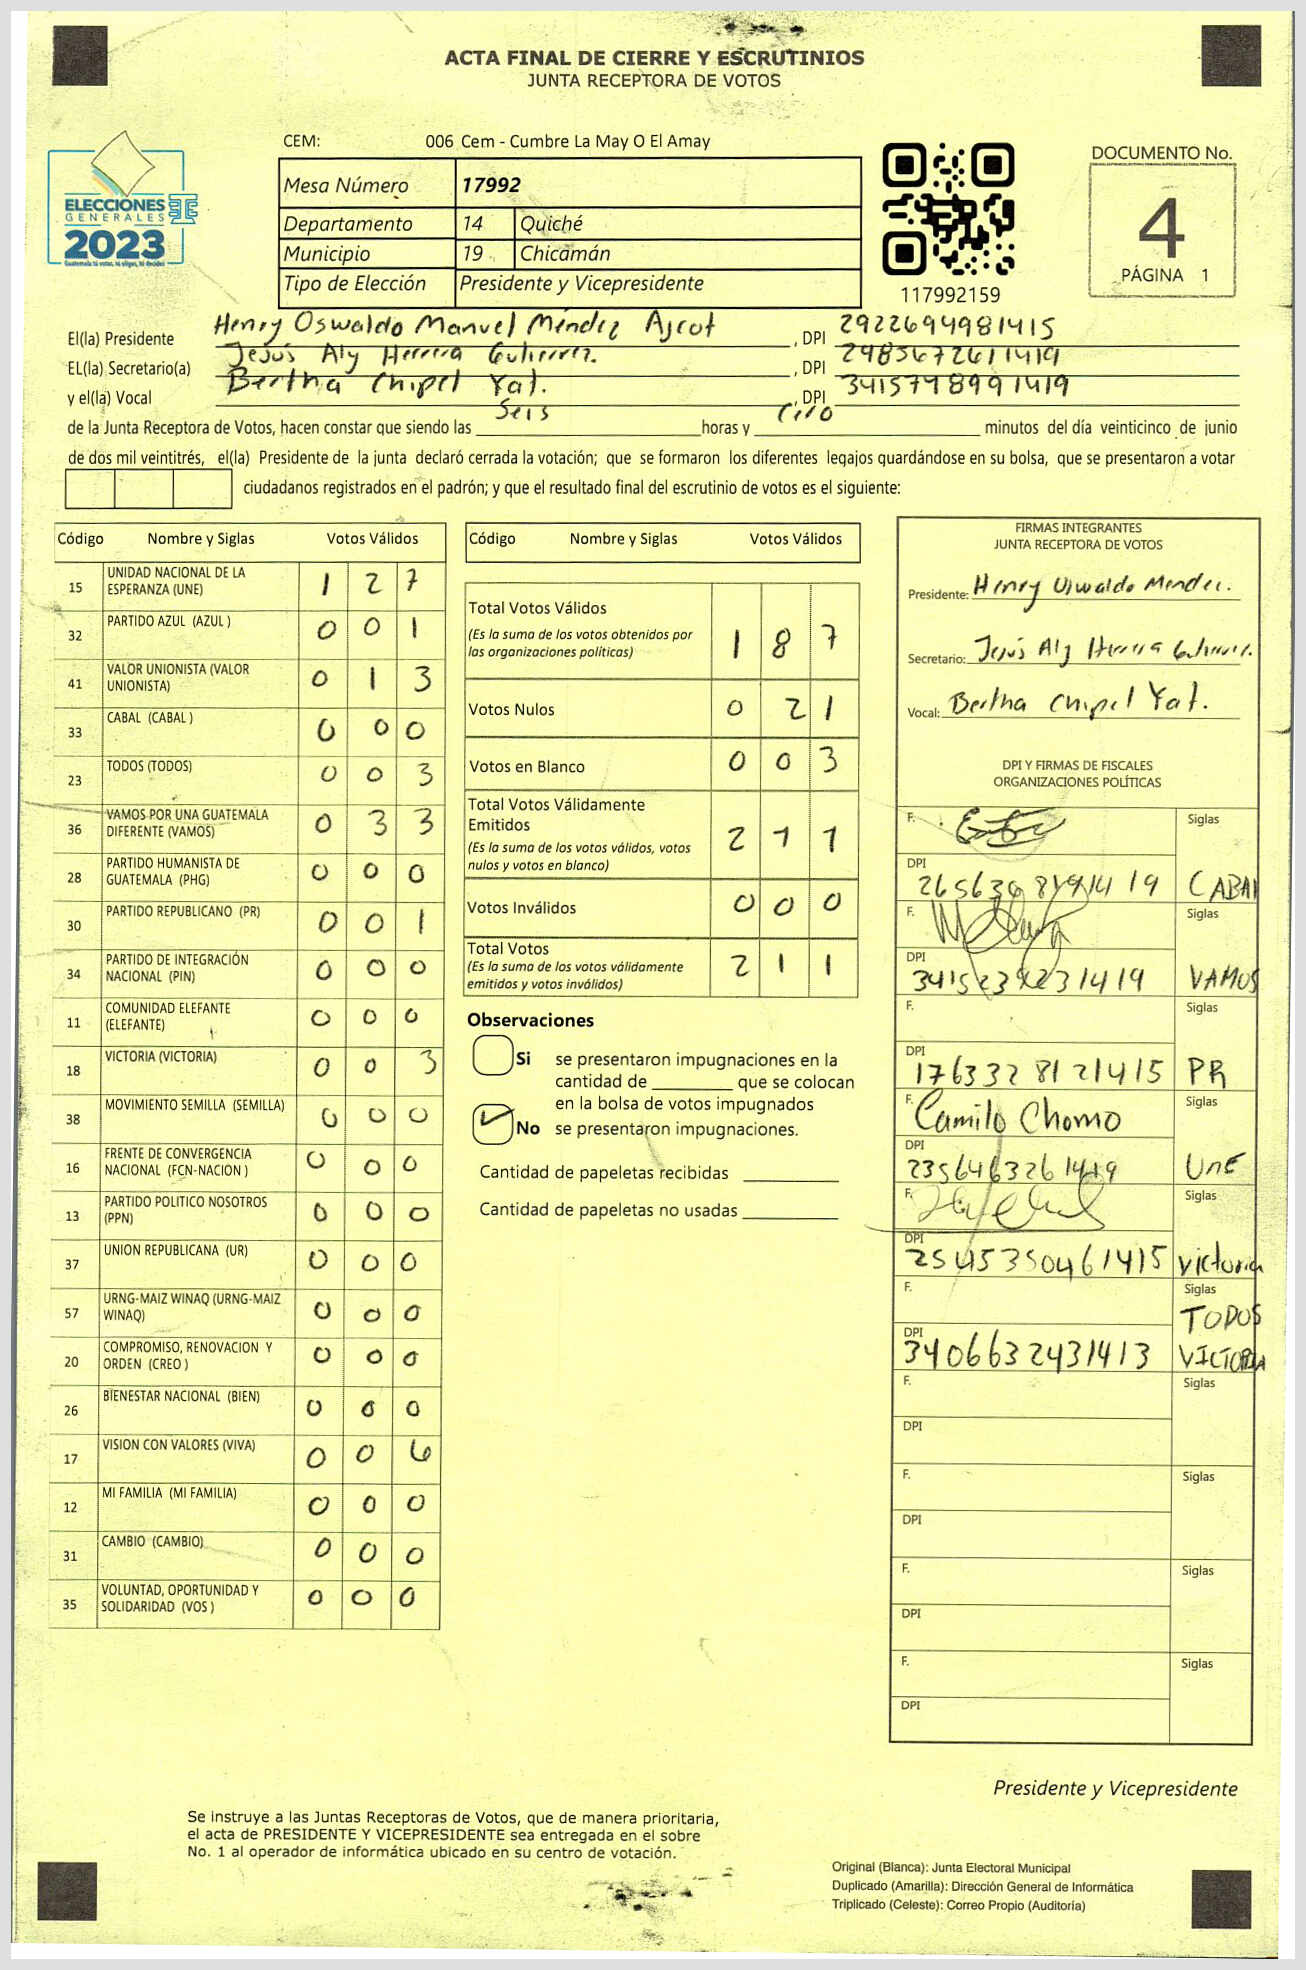 ACTA FINAL DE CIERRE Y ESCRUTINIOS
JUNTA RECEPTORA DE VOTOS
ELECCIONES
GENERALES
2023
Guatemala tú votas, tú eliges, tú decides
CEM: 006 Cem - Cumbre La May O El Amay
Mesa Número 17992
Departamento 14 Quiché
Municipio 19 Chicamán
Tipo de Elección Presidente y Vicepresidente
117992159
DOCUMENTO No.
4
PÁGINA 1
El(la) Presidente Henry Oswaldo Manuel Méndez Ajcot , DPI 2922694981415
EL(la) Secretario(a) Jesús Aly Herrera Gutierrez. , DPI 2985672611419
y el(la) Vocal Bertha Chipel Yat. , DPI 3415748991419
de la Junta Receptora de Votos, hacen constar que siendo las Seis horas y Cero minutos del día veinticinco de junio
de dos mil veintitrés, el(la) Presidente de la junta declaró cerrada la votación; que se formaron los diferentes legajos guardándose en su bolsa, que se presentaron a votar
ciudadanos registrados en el padrón; y que el resultado final del escrutinio de votos es el siguiente:
Código Nombre y Siglas Votos Válidos
15 UNIDAD NACIONAL DE LA ESPERANZA (UNE) 1 2 7
32 PARTIDO AZUL (AZUL ) 0 0 1
41 VALOR UNIONISTA (VALOR UNIONISTA) 0 1 3
33 CABAL (CABAL ) 0 0 0
23 TODOS (TODOS) 0 0 3
36 VAMOS POR UNA GUATEMALA DIFERENTE (VAMOS) 0 3 3
28 PARTIDO HUMANISTA DE GUATEMALA (PHG) 0 0 0
30 PARTIDO REPUBLICANO (PR) 0 0 1
34 PARTIDO DE INTEGRACIÓN NACIONAL (PIN) 0 0 0
11 COMUNIDAD ELEFANTE (ELEFANTE) 0 0 0
18 VICTORIA (VICTORIA) 0 0 3
38 MOVIMIENTO SEMILLA (SEMILLA) 0 0 0
16 FRENTE DE CONVERGENCIA NACIONAL (FCN-NACION ) 0 0 0
13 PARTIDO POLITICO NOSOTROS (PPN) 0 0 0
37 UNION REPUBLICANA (UR) 0 0 0
57 URNG-MAIZ WINAQ (URNG-MAIZ WINAQ) 0 0 0
20 COMPROMISO, RENOVACION Y ORDEN (CREO ) 0 0 0
26 BIENESTAR NACIONAL (BIEN) 0 0 0
17 VISION CON VALORES (VIVA) 0 0 6
12 MI FAMILIA (MI FAMILIA) 0 0 0
31 CAMBIO (CAMBIO) 0 0 0
35 VOLUNTAD, OPORTUNIDAD Y SOLIDARIDAD (VOS ) 0 0 0
Código Nombre y Siglas Votos Válidos
Total Votos Válidos 1 8 7
(Es la suma de los votos obtenidos por
las organizaciones políticas)
Votos Nulos 0 2 1
Votos en Blanco 0 0 3
Total Votos Válidamente
Emitidos 2 1 1
(Es la suma de los votos válidos, votos
nulos y votos en blanco)
Votos Inválidos 0 0 0
Total Votos 2 1 1
(Es la suma de los votos válidamente
emitidos y votos inválidos)
Observaciones
Si se presentaron impugnaciones en la
cantidad de ________ que se colocan
en la bolsa de votos impugnados
No se presentaron impugnaciones.
Cantidad de papeletas recibidas ________
Cantidad de papeletas no usadas ________
FIRMAS INTEGRANTES
JUNTA RECEPTORA DE VOTOS
Presidente: Henry Oswaldo Mendez.
Secretario: Jesús Aly Herrera Gutierrez.
Vocal: Bertha Chipel Yat.
DPI Y FIRMAS DE FISCALES
ORGANIZACIONES POLÍTICAS
F. Siglas
DPI CABAL
F. Siglas
DPI VAMOS
F. Siglas
DPI 1763328121415 PR
F. Camilo Chomo Siglas
DPI 2356463261419 UnE
F. Siglas
DPI 2545350461415 Victoria
F. Siglas
TODOS
DPI 3406632431413 VICTORIA
F. Siglas
DPI
F. Siglas
DPI
F. Siglas
DPI
F. Siglas
DPI
Presidente y Vicepresidente
Se instruye a las Juntas Receptoras de Votos, que de manera prioritaria,
el acta de PRESIDENTE Y VICEPRESIDENTE sea entregada en el sobre
No. 1 al operador de informática ubicado en su centro de votación.
Original (Blanca): Junta Electoral Municipal
Duplicado (Amarilla): Dirección General de Informática
Triplicado (Celeste): Correo Propio (Auditoría)